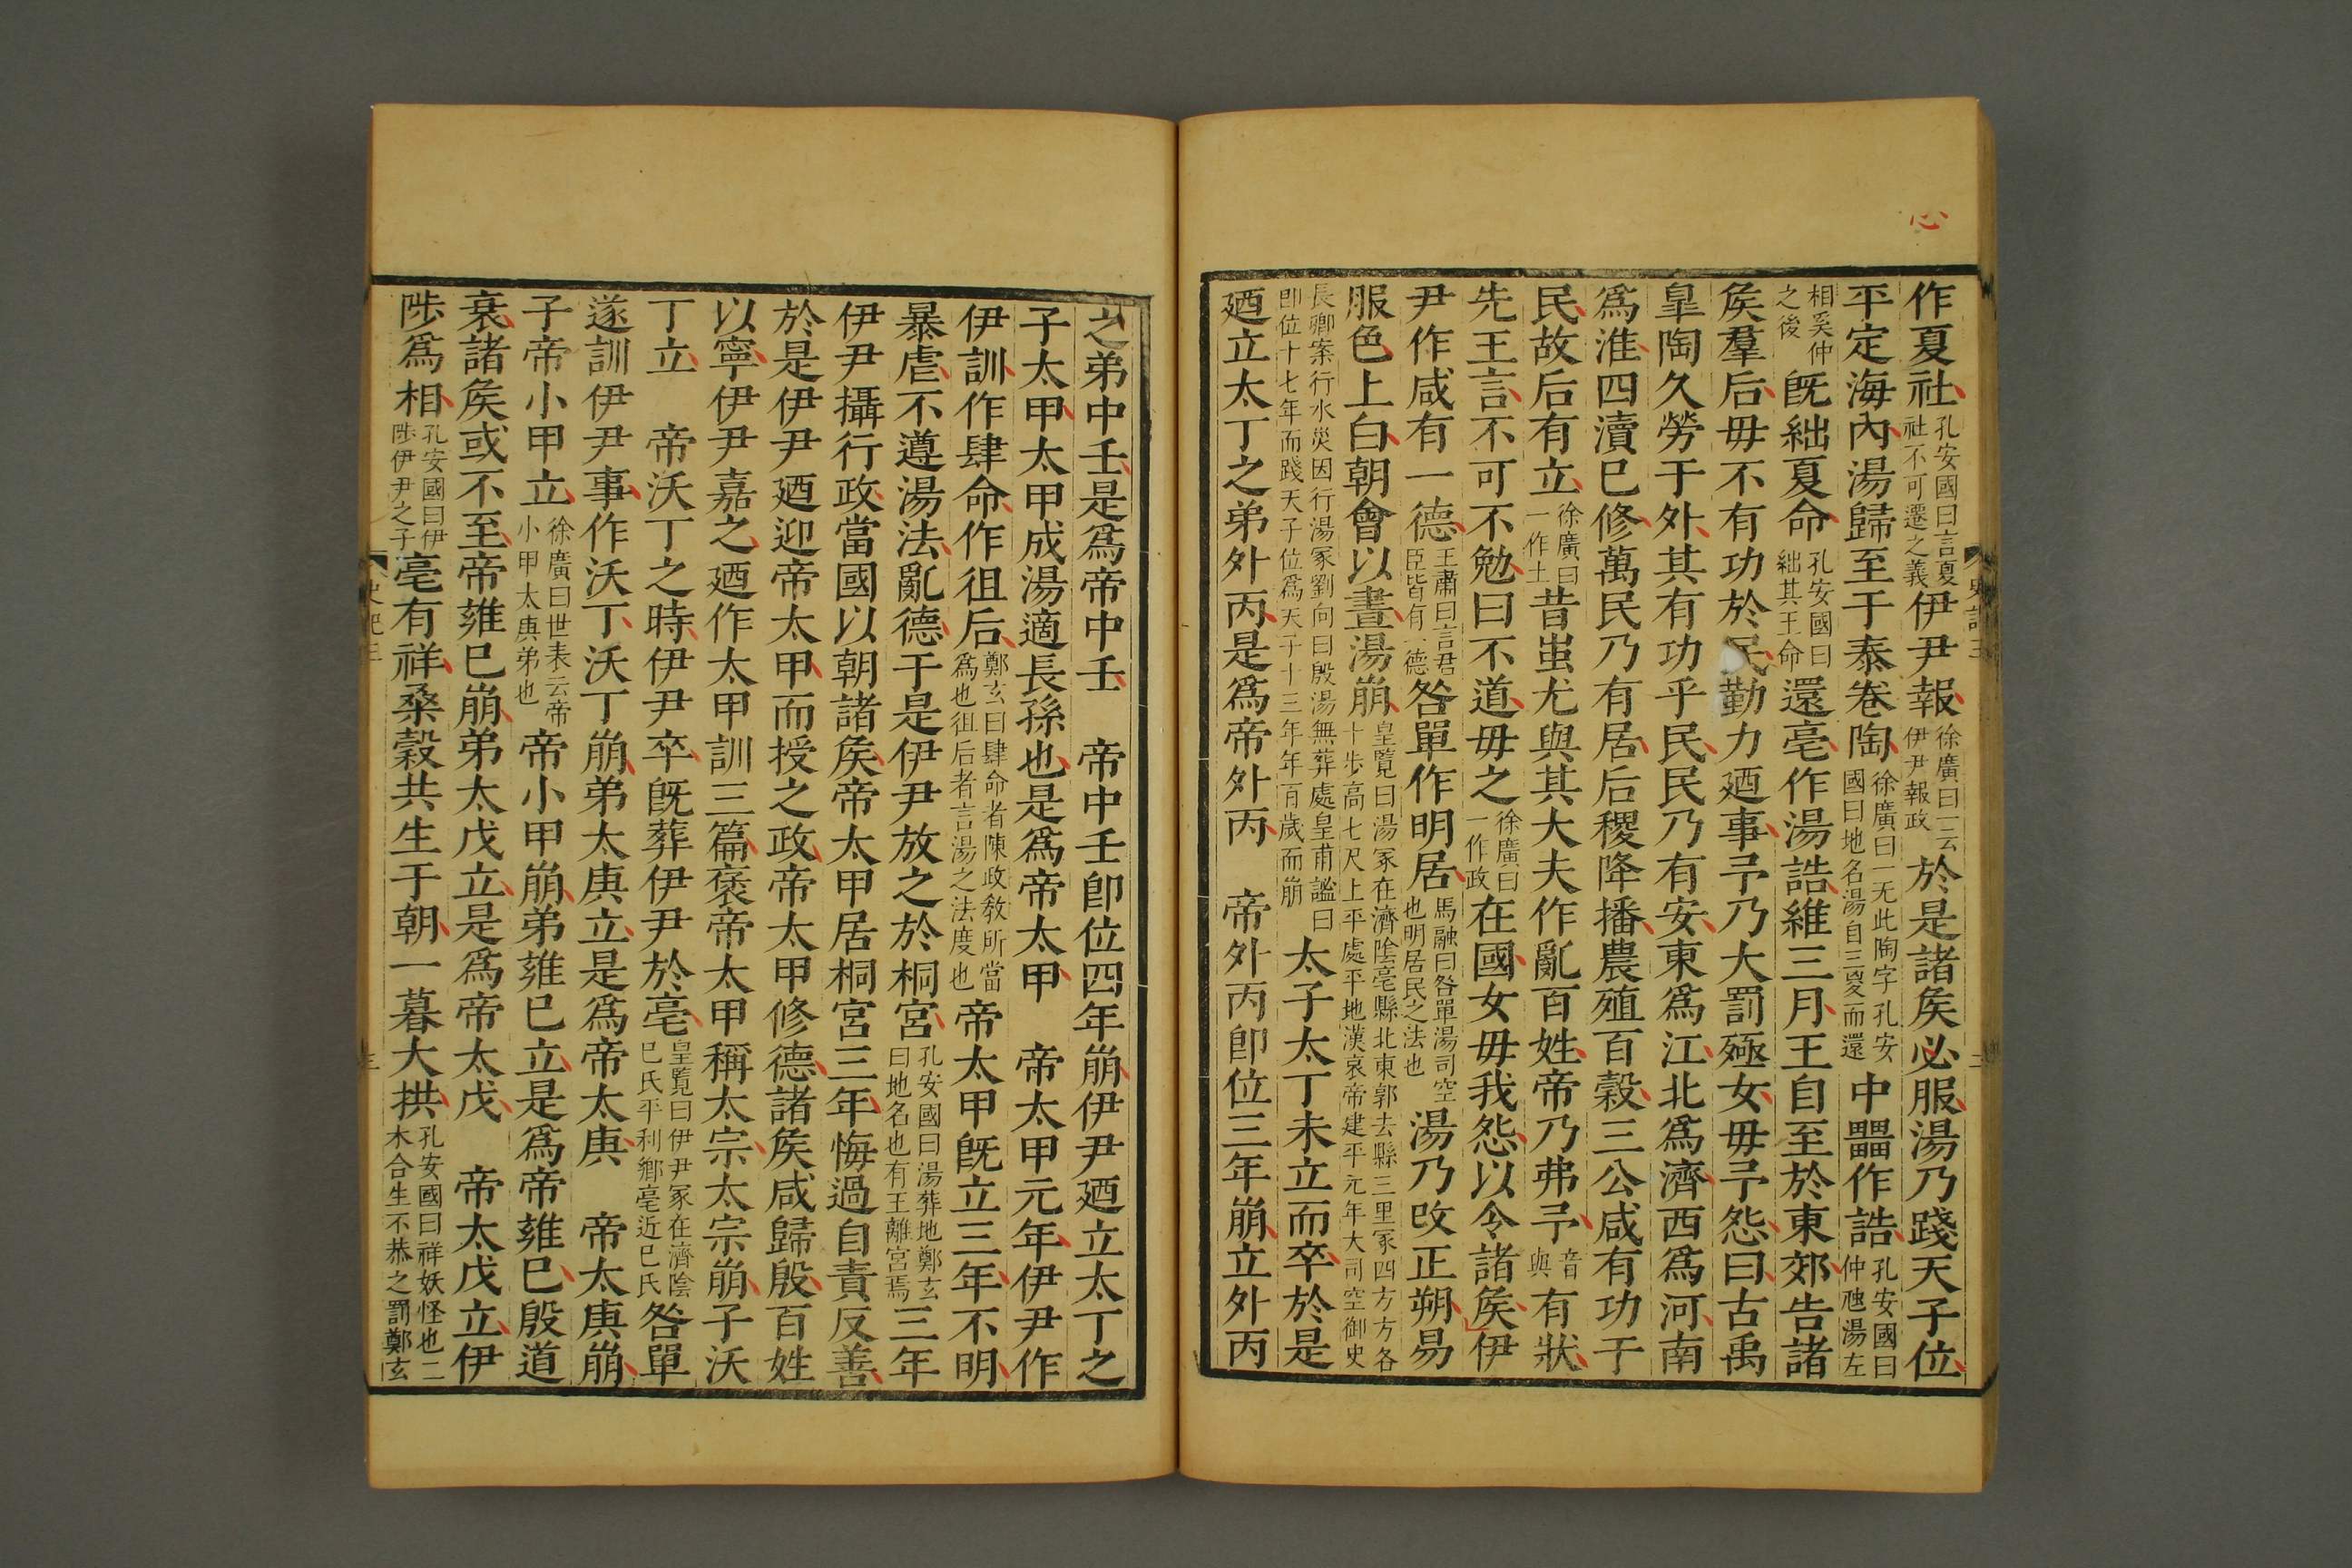 心
作夏社孔安國曰言夏社不可遷之義伊尹報徐廣曰一云伊尹報政於是諸矦必服湯乃踐天子位
平定海內湯歸至于泰卷陶徐廣曰一无此陶字孔安國曰地名湯自三㚇而還中壘作誥孔安國曰仲虺湯左
相奚仲之後旣絀夏命孔安國曰絀其王命還亳作湯誥維三月王自至於東郊告諸
矦羣后毋不有功於民勤力廼事予乃大罰殛女毋予怨曰古禹
皐陶久勞于外其有功乎民民乃有安東爲江北爲濟西爲河南
爲淮四瀆已修萬民乃有居后稷降播農殖百穀三公咸有功于
民故后有立徐廣曰一作土昔蚩尤與其大夫作亂百姓帝乃弗予音與有狀
先王言不可不勉曰不道毋之徐廣曰一作政在國女毋我怨以令諸矦伊
尹作咸有一德王肅曰言君臣皆有一德咎單作明居馬融曰咎單湯司空也明居民之法也湯乃改正朔易
服色上白朝會以晝湯崩皇覽曰湯冢在濟陰亳縣北東郭去縣三里冢四方方各十步高七尺上平處平地漢哀帝建平元年大司空御史
長卿案行水災因行湯冢劉向曰殷湯無葬處皇甫謐曰卽位十七年而踐天子位爲天子十三年年百歲而崩太子太丁未立而卒於是
廼立太丁之弟外丙是爲帝外丙　帝外丙卽位三年崩立外丙
史記三
二
之弟中壬是爲帝中壬　帝中壬卽位四年崩伊尹廼立太丁之
子太甲太甲成湯適長孫也是爲帝太甲　帝太甲元年伊尹作
伊訓作肆命作徂后鄭玄曰肆命者陳政敎所當爲也徂后者言湯之法度也帝太甲旣立三年不明
暴虐不遵湯法亂德于是伊尹放之於桐宮孔安國曰湯葬地鄭玄曰地名也有王離宮焉三年
伊尹攝行政當國以朝諸矦帝太甲居桐宮三年悔過自責反善
於是伊尹廼迎帝太甲而授之政帝太甲修德諸矦咸歸殷百姓
以寧伊尹嘉之廼作太甲訓三篇褒帝太甲稱太宗太宗崩子沃
丁立　帝沃丁之時伊尹卒旣葬伊尹於亳皇覽曰伊尹冢在濟陰已氏平利鄉亳近已氏咎單
遂訓伊尹事作沃丁沃丁崩弟太庚立是爲帝太庚　帝太庚崩
子帝小甲立徐廣曰世表云帝小甲太庚弟也帝小甲崩弟雍已立是爲帝雍已殷道
衰諸矦或不至帝雍已崩弟太戊立是爲帝太戊　帝太戊立伊
陟爲相孔安國曰伊陟伊尹之子亳有祥桑穀共生于朝一暮大拱孔安國曰祥妖怪也二木合生不恭之罰鄭玄
史記三
三